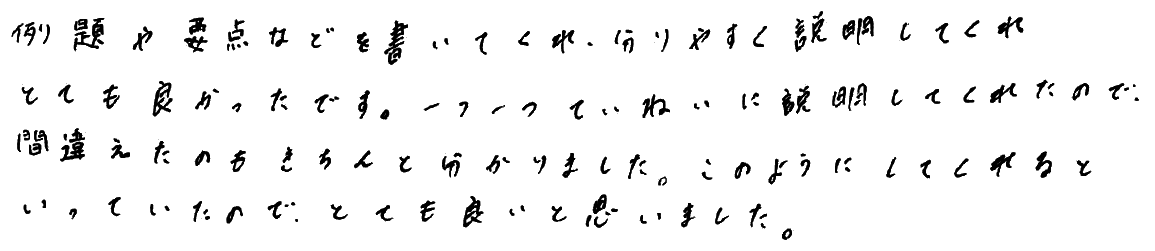 例題や要点などを書いてくれ、分りやすく説明してくれ
とても良かったです。一つ一つていねいに説明してくれたので、
間違えたのもきちんと分かりました。このようにしてくれると
いっていたので、とても良いと思いました。